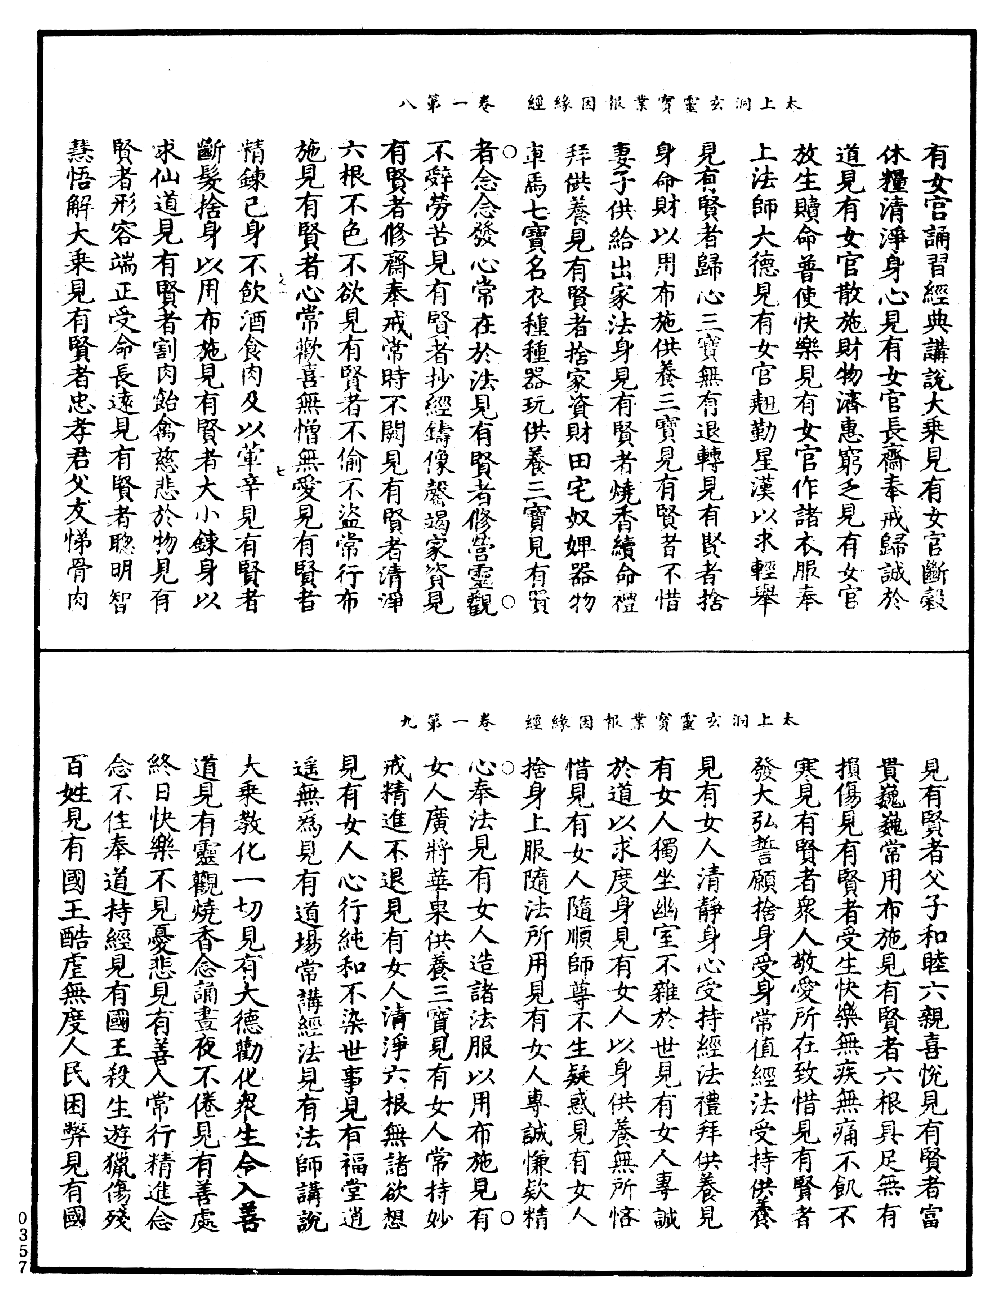 太上洞玄靈寶業報因緣經　卷一第八
有女官誦習經典講說大乘見有女官斷穀
休糧清淨身心見有女官長齋奉戒歸誠於
道見有女官散施財物濟惠窮乏見有女官
放生贖命普使快樂見有女官作諸衣服奉
上法師大德見有女官翹勤星漢以求輕舉
見有賢者歸心三寶無有退轉見有賢者捨
身命財以用布施供養三寶見有賢者不惜
妻子供給出家法身見有賢者燒香續命禮
拜供養見有賢者捨家資財田宅奴婢器物
車馬七寶名衣種種器玩供養三寶見有賢
者念念發心常在於法見有賢者修營靈觀
不辭勞苦見有賢者抄經鑄像罄竭家資見
有賢者修齋奉戒常時不闕見有賢者清淨
六根不色不欲見有賢者不偷不盜常行布
施見有賢者心常歡喜無憎無愛見有賢者
精鍊己身不飲酒食肉及以葷辛見有賢者
斷髮捨身以用布施見有賢者大小鍊身以
求仙道見有賢者割肉飴禽慈悲於物見有
賢者形容端正受命長遠見有賢者聰明智
慧悟解大乘見有賢者忠孝君父友悌骨肉
太上洞玄靈寶業報因緣經　卷一第九
見有賢者父子和睦六親喜悅見有賢者富
貴巍巍常用布施見有賢者六根具足無有
損傷見有賢者受生快樂無疾無痛不飢不
寒見有賢者眾人敬愛所在致惜見有賢者
發大弘誓願捨身受身常值經法受持供養
見有女人清靜身心受持經法禮拜供養見
有女人獨坐幽室不雜於世見有女人專誠
於道以求度身見有女人以身供養無所悋
惜見有女人隨順師尊不生疑惑見有女人
捨身上服隨法所用見有女人專誠慊款精
心奉法見有女人造諸法服以用布施見有
女人廣將華果供養三寶見有女人常持妙
戒精進不退見有女人清淨六根無諸欲想
見有女人心行純和不染世事見有福堂逍
遥無為見有道場常講經法見有法師講說
大乘教化一切見有大德勸化眾生令入善
道見有靈觀燒香念誦晝夜不倦見有善處
終日快樂不見憂悲見有善人常行精進念
念不住奉道持經見有國王殺生遊獵傷殘
百姓見有國王酷虐無度人民困弊見有國
0357